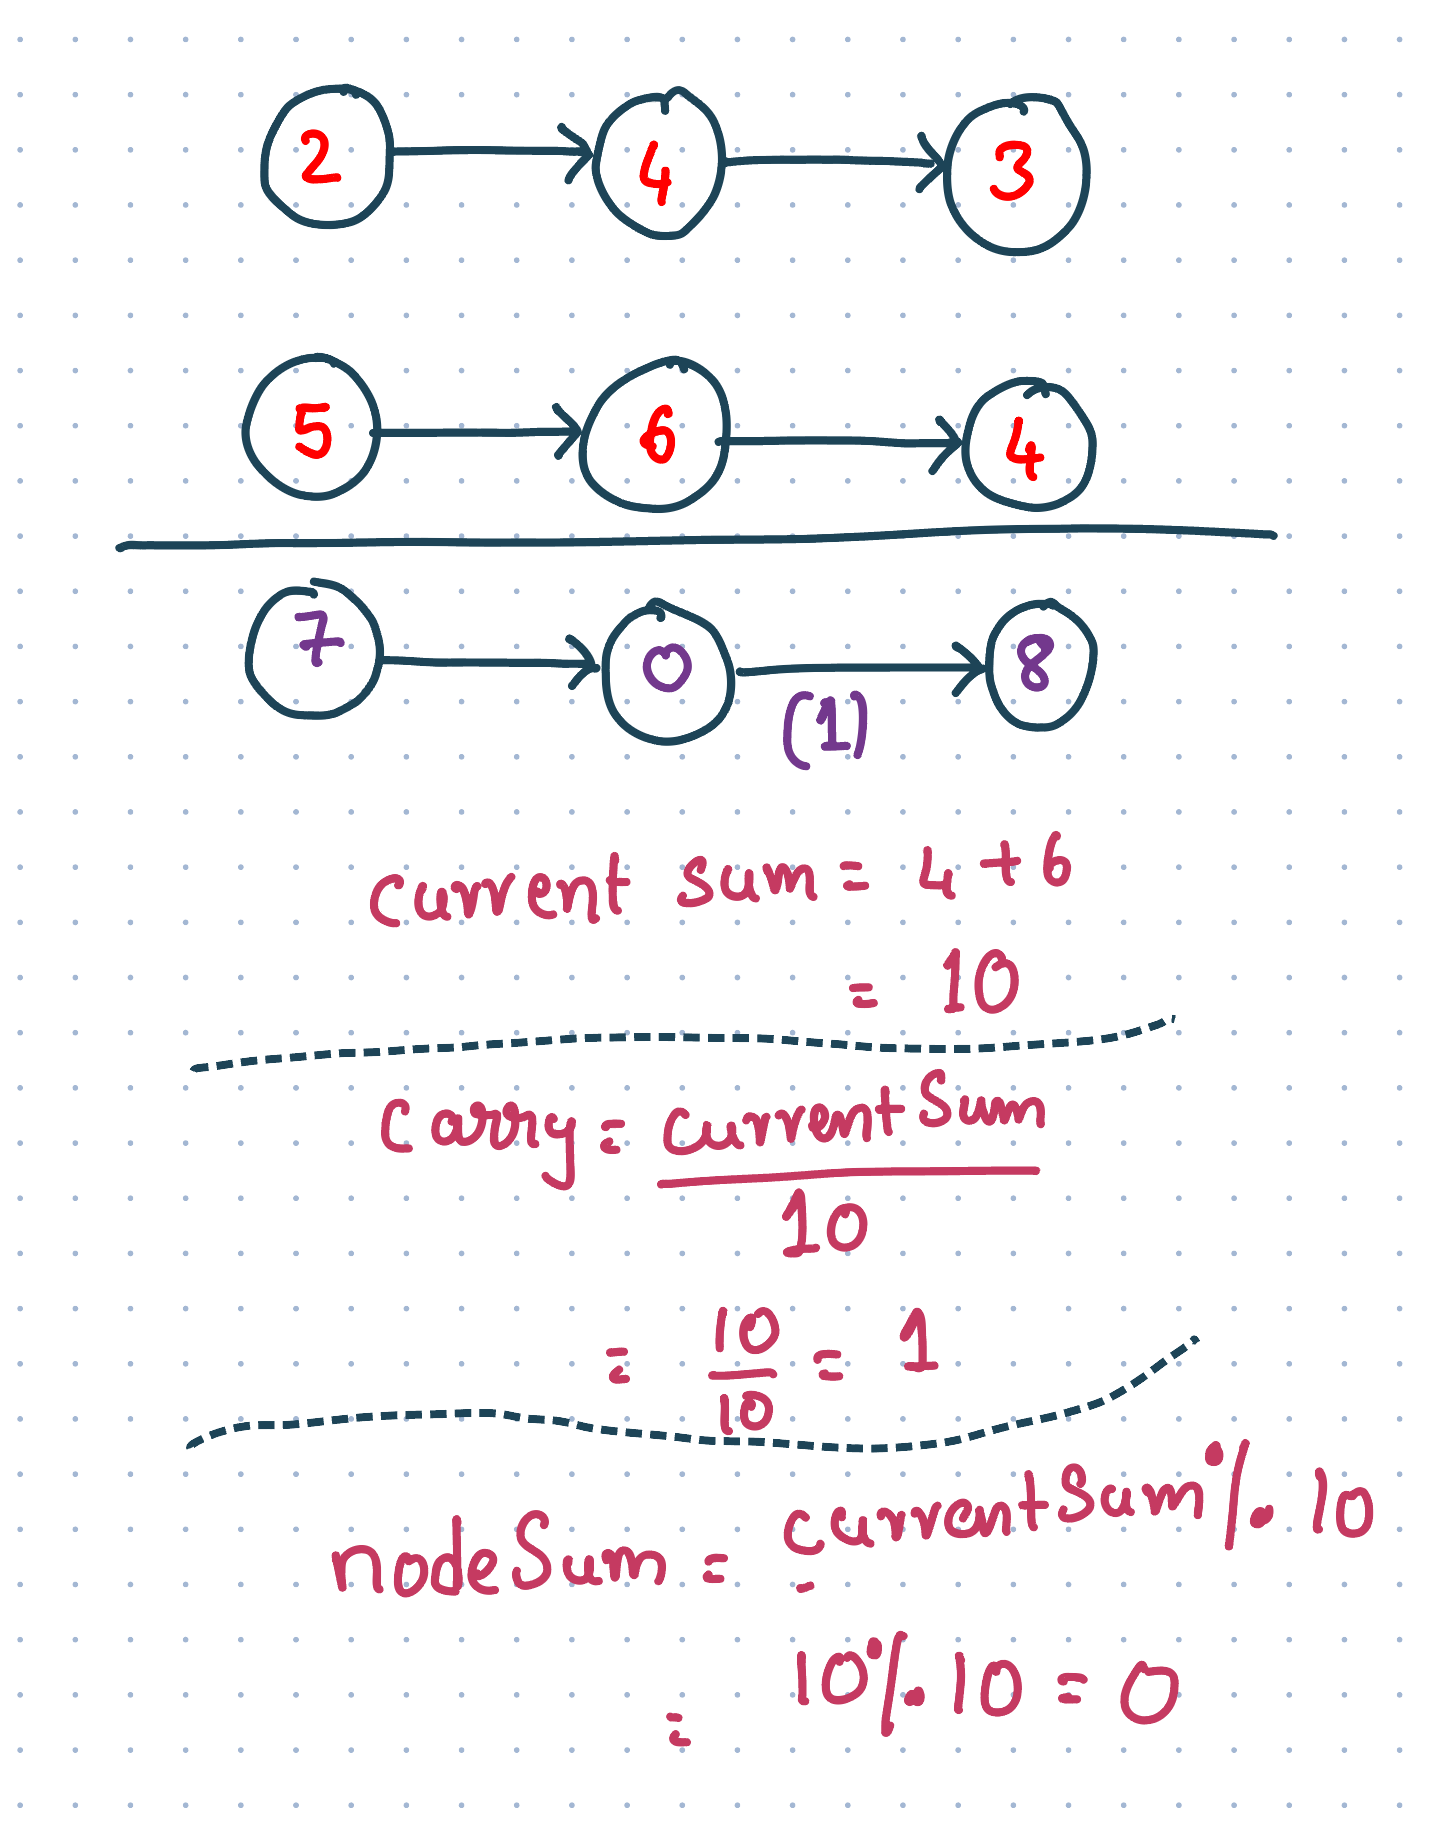 2 4 3
5 6 4
7 0 8
(1)
Current Sum = 4 + 6
= 10
Carry = CurrentSum
10
= 10 = 1
10
nodeSum = currentSum % 10
= 10 % 10 = 0